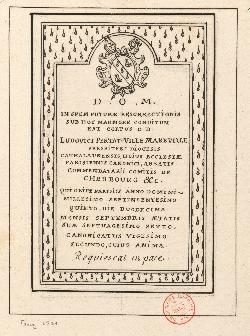 D. O. M.
IN SPEM FUTURÆ RESURRECTIONIS
SUB HOC MARMORE CONDITUM
EST CORPUS D D
LUDOVICI
PRESBITERI DIOCESIS
CATHALAUNENSIS, HUIUS ECCLESIÆ
PARISIENSIS CANONICI, ABBATIS
COMMENDATARII COMITIS DE
CHERBOURG &c.
QUI OBIIT PARISIIS ANNO DOMINI
MILLESIMO SEPTINGENTESIMO
QUINTO, DIE DUODECIMA
MENSIS SEPTEMBRIS ÆTATIS
SUÆ SEPTUAGESIMO SEXTO,
CANONICATUS VIGESIMO
SECUNDO, CUIUS ANIMA
Requiescat in pace.